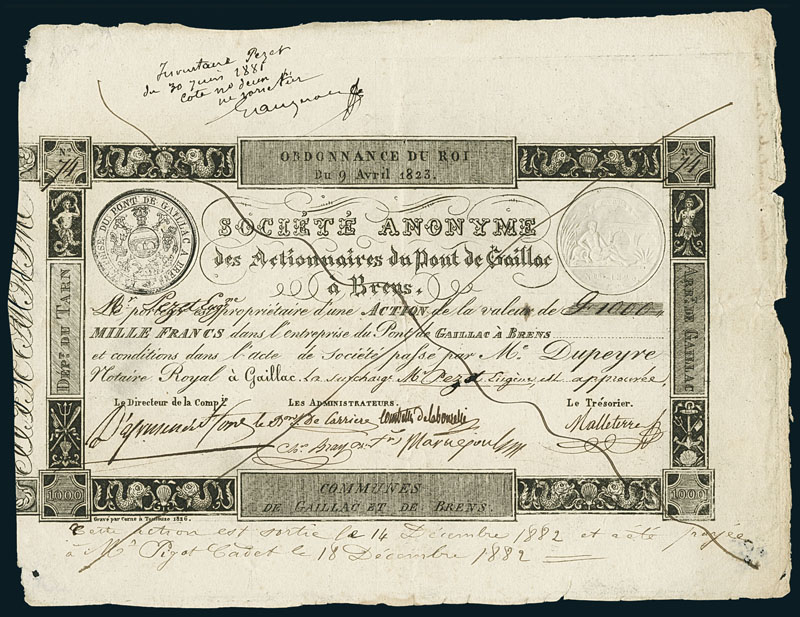 Inventaire Pezet
du 30 juin 1881
Cote no deux
Nº 74
ORDONNANCE DU ROI
Du 9 Avril 1823.
Nº 74
DU PONT DE GAILLAC A BRENS
SOCIÉTÉ ANONYME
des Actionnaires du Pont de Gaillac
a Brens.
DÉPT. DU TARN
ARRT. DE GAILLAC
Mr. Pezet Eugne propriétaire d'une ACTION de la valeur de F. 1000
MILLE FRANCS dans l'entreprise du Pont de GAILLAC À BRENS
et conditions dans l'acte de Société passé par Me. Dupeyre
Notaire Royal à Gaillac. La surcharge Mr Pezet Eugène est approuvée.
Le Directeur de la Compie. LES ADMINISTRATEURS. Le Trésorier.
le Bon De Carrière Combettes Malleterre
1000
COMMUNES
DE GAILLAC ET DE BRENS.
1000
Gravé par Carné à Toulouse 1826.
Cette action est sortie le 14 Décembre 1882 et a été payée
à Mr Pezet Cadet le 18 Décembre 1882